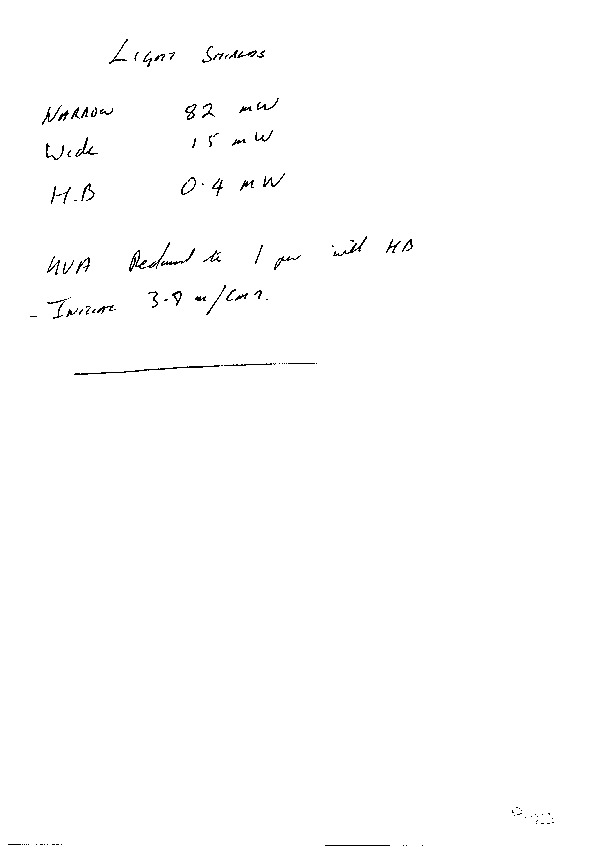 LIGHT SHIELDS
NARROW 82 mW
Wide 15 mW
H.B 0.4 mW
UVA Reduced to 1 μw with HB
- INITIAL 3.8 m/cm2.